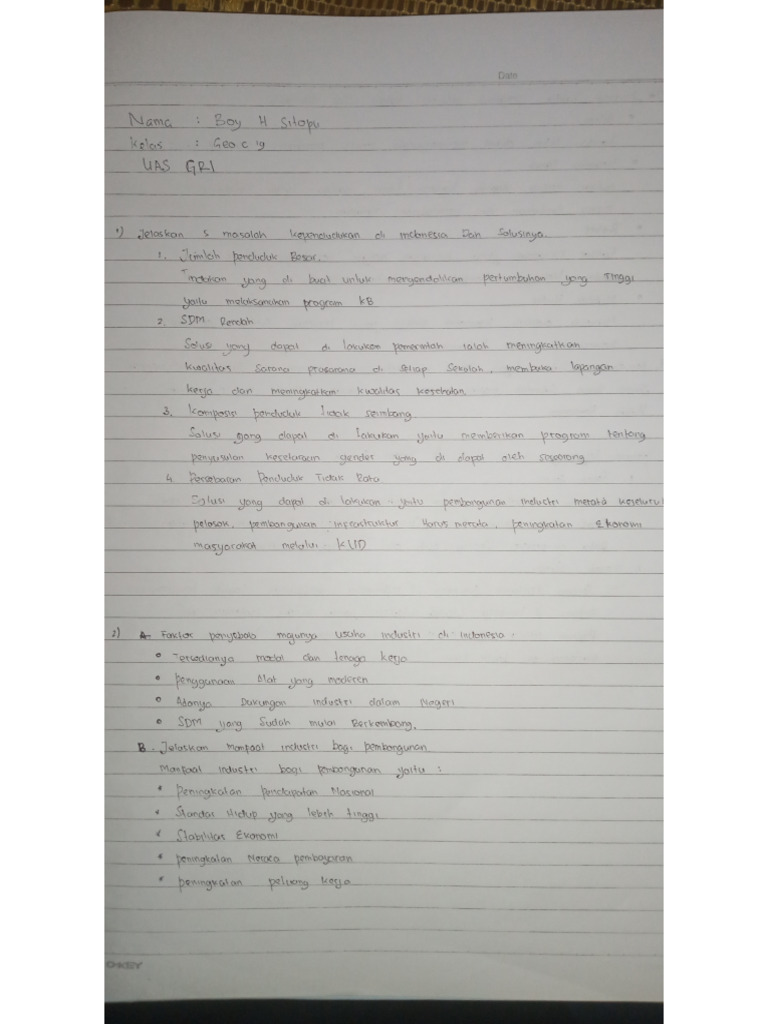 Date
Nama : Boy H Sitopu
Kelas : Geo C 19
UAS GRI
1) Jelaskan 5 masalah kependudukan di indonesia Dan Solusinya.
1. Jumlah penduduk Besar.
Tindakan yang di buat untuk mengendalikan pertumbuhan yang Tinggi
yaitu melaksanakan program KB
2. SDM Rendah
Solusi yang dapat di lakukan pemerintah ialah meningkatkan
kualitas Sarana prasarana di setiap Sekolah, membuka lapangan
kerja dan meningkatkan kualitas kesehatan
3. Komposisi penduduk Tidak seimbang
Solusi yang dapat di lakukan yaitu memberikan program tentang
penyusulan keselaraan gender yang di dapat oleh seseorang
4. Persebaran Penduduk Tidak Rata
Solusi yang dapat di lakukan yaitu pembangunan industri merata keseluru
pelosok, pembangunan infrastruktur Harus merata, peningkatan Ekonomi
masyarakat melalui KUD
2) A. Faktor penyebab majunya usaha industri di indonesia :
• Tersedianya modal dan tenaga kerja
• penggunaan Alat yang moderen
• Adanya Dukungan industri dalam Negeri
• SDM yang Sudah mulai Berkembang.
B. Jelaskan Manfaat industri bagi pembangunan
Manfaat industri bagi pembangunan yaitu :
• Peningkatan pendapatan Nasional
• Standar Hidup yang lebih tinggi
• Stabilitas Ekonomi
• peningkatan Neraca pembayaran
• peningkatan peluang kerja
OKEY